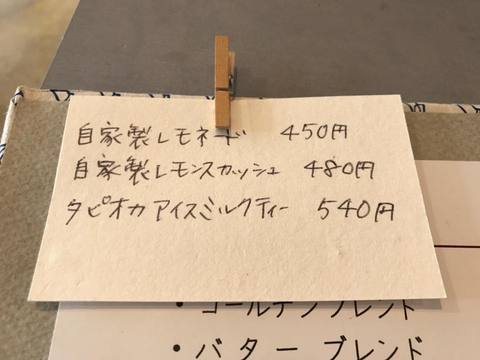 自家製レモネード 450円
自家製レモンスカッシュ 480円
タピオカアイスミルクティー 540円
・ゴールデンブレンド
・バター ブレンド